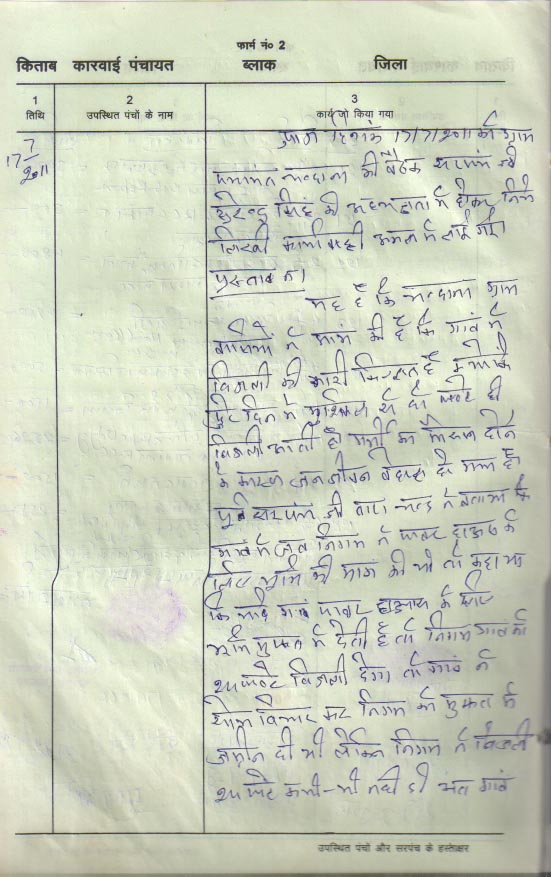 फार्म नं० 2
किताब कारवाई पंचायत ब्लाक जिला
1 2 3
तिथि उपस्थित पंचों के नाम कार्य जो किया गया
17/7/2011
आज दिनांक 17/7/2011 को ग्राम
पंचायत की बैठक सरपंच श्री
सुरेन्द्र सिंह की अध्यक्षता में होकर निम्न
लिखी कार्यवाही अमल में लाई गई।
प्रस्ताव नं1
यह है कि ग्राम
वासियों ने मांग की है कि गावं में
बिजली की भारी किल्लत है क्योंकि
पुरे दिन में मुश्किल से दो घण्टे ही
बिजली आती है। गर्मी का मौसम होने
के कारण जन जीवन बेहाल हो गया है।
पूर्व सरपंच श्री ने बताया कि
गावं में जब निगम ने पावर हाऊस के
लिए भूमि की मांग की थी तो कहा था
कि यदि गावं पावर हाऊस के लिए
भूमि मुफ्त में देती है तो निगम गावं को
24 घण्टे बिजली देगा तो गावं ने
सोच विचार कर निगम को मुफ्त में
जमीन दी थी लेकिन निगम ने बिजली
24 घण्टे कभी-भी नही दी अंत गावं
उपस्थित पंचों और सरपंच के हस्ताक्षर